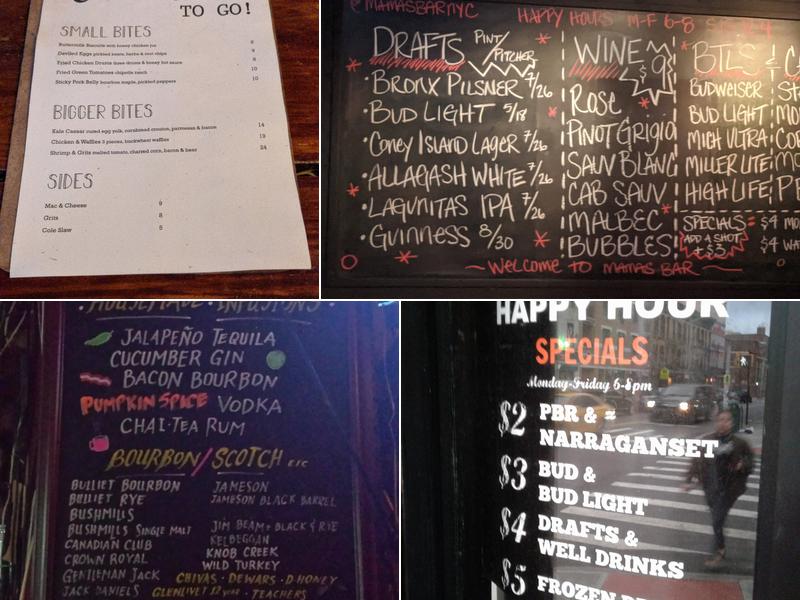 TO GO!
SMALL BITES
Buttermilk Biscuits with honey chicken jus 8
Deviled Eggs pickled beets, herbs & root chips 9
Fried Chicken Drums three drums & honey hot sauce 8
Fried Green Tomatoes chipotle ranch 10
Sticky Pork Belly bourbon maple, pickled peppers 10
BIGGER BITES
Kale Caesar cured egg yolk, cornbread crouton, parmesan & bacon 14
Chicken & Waffles 3 pieces, buckwheat waffles 19
Shrimp & Grits melted tomato, charred corn, bacon & beer 24
SIDES
Mac & Cheese 9
Grits 8
Cole Slaw 5
@MAMASBARNYC HAPPY HOURS M-F 6-8
DRAFTS PINT/PITCHER
• BRONX PILSNER 7/26
• BUD LIGHT 5/18
• CONEY ISLAND LAGER 7/26
• ALLAGASH WHITE 7/26
• LAGUNITAS IPA 7/26
• GUINNESS 8/30
WINE $9
ROSE
PINOT GRIGIO
SAUV BLANC
CAB SAUV
MALBEC
BUBBLES!
BTLS &
BUDWEISER
BUD LIGHT
MICH ULTRA
MILLER LITE
HIGH LIFE
SPECIALS = $4
ADD A SHOT + $3
$4
~ WELCOME TO MAMAS BAR ~
• HOUSEMADE • INFUSIONS •
JALAPEÑO TEQUILA
CUCUMBER GIN
BACON BOURBON
PUMPKIN SPICE VODKA
CHAI-TEA RUM
BOURBON/SCOTCH ETC
BULLIET BOURBON
BULLIET RYE
BUSHMILLS
BUSHMILLS SINGLE MALT
CANADIAN CLUB
CROWN ROYAL
GENTLEMAN JACK
JACK DANIELS
JAMESON
JAMESON BLACK BARREL
JIM BEAM + BLACK & RYE
KELBEGGAN
KNOB CREEK
WILD TURKEY
CHIVAS • DEWARS • D.HONEY
GLENLIVET 12 year • TEACHERS
HAPPY HOUR
SPECIALS
Monday-Friday 6-8pm
$2 PBR &
NARRAGANSET
$3 BUD &
BUD LIGHT
$4 DRAFTS &
WELL DRINKS
$5 FROZEN